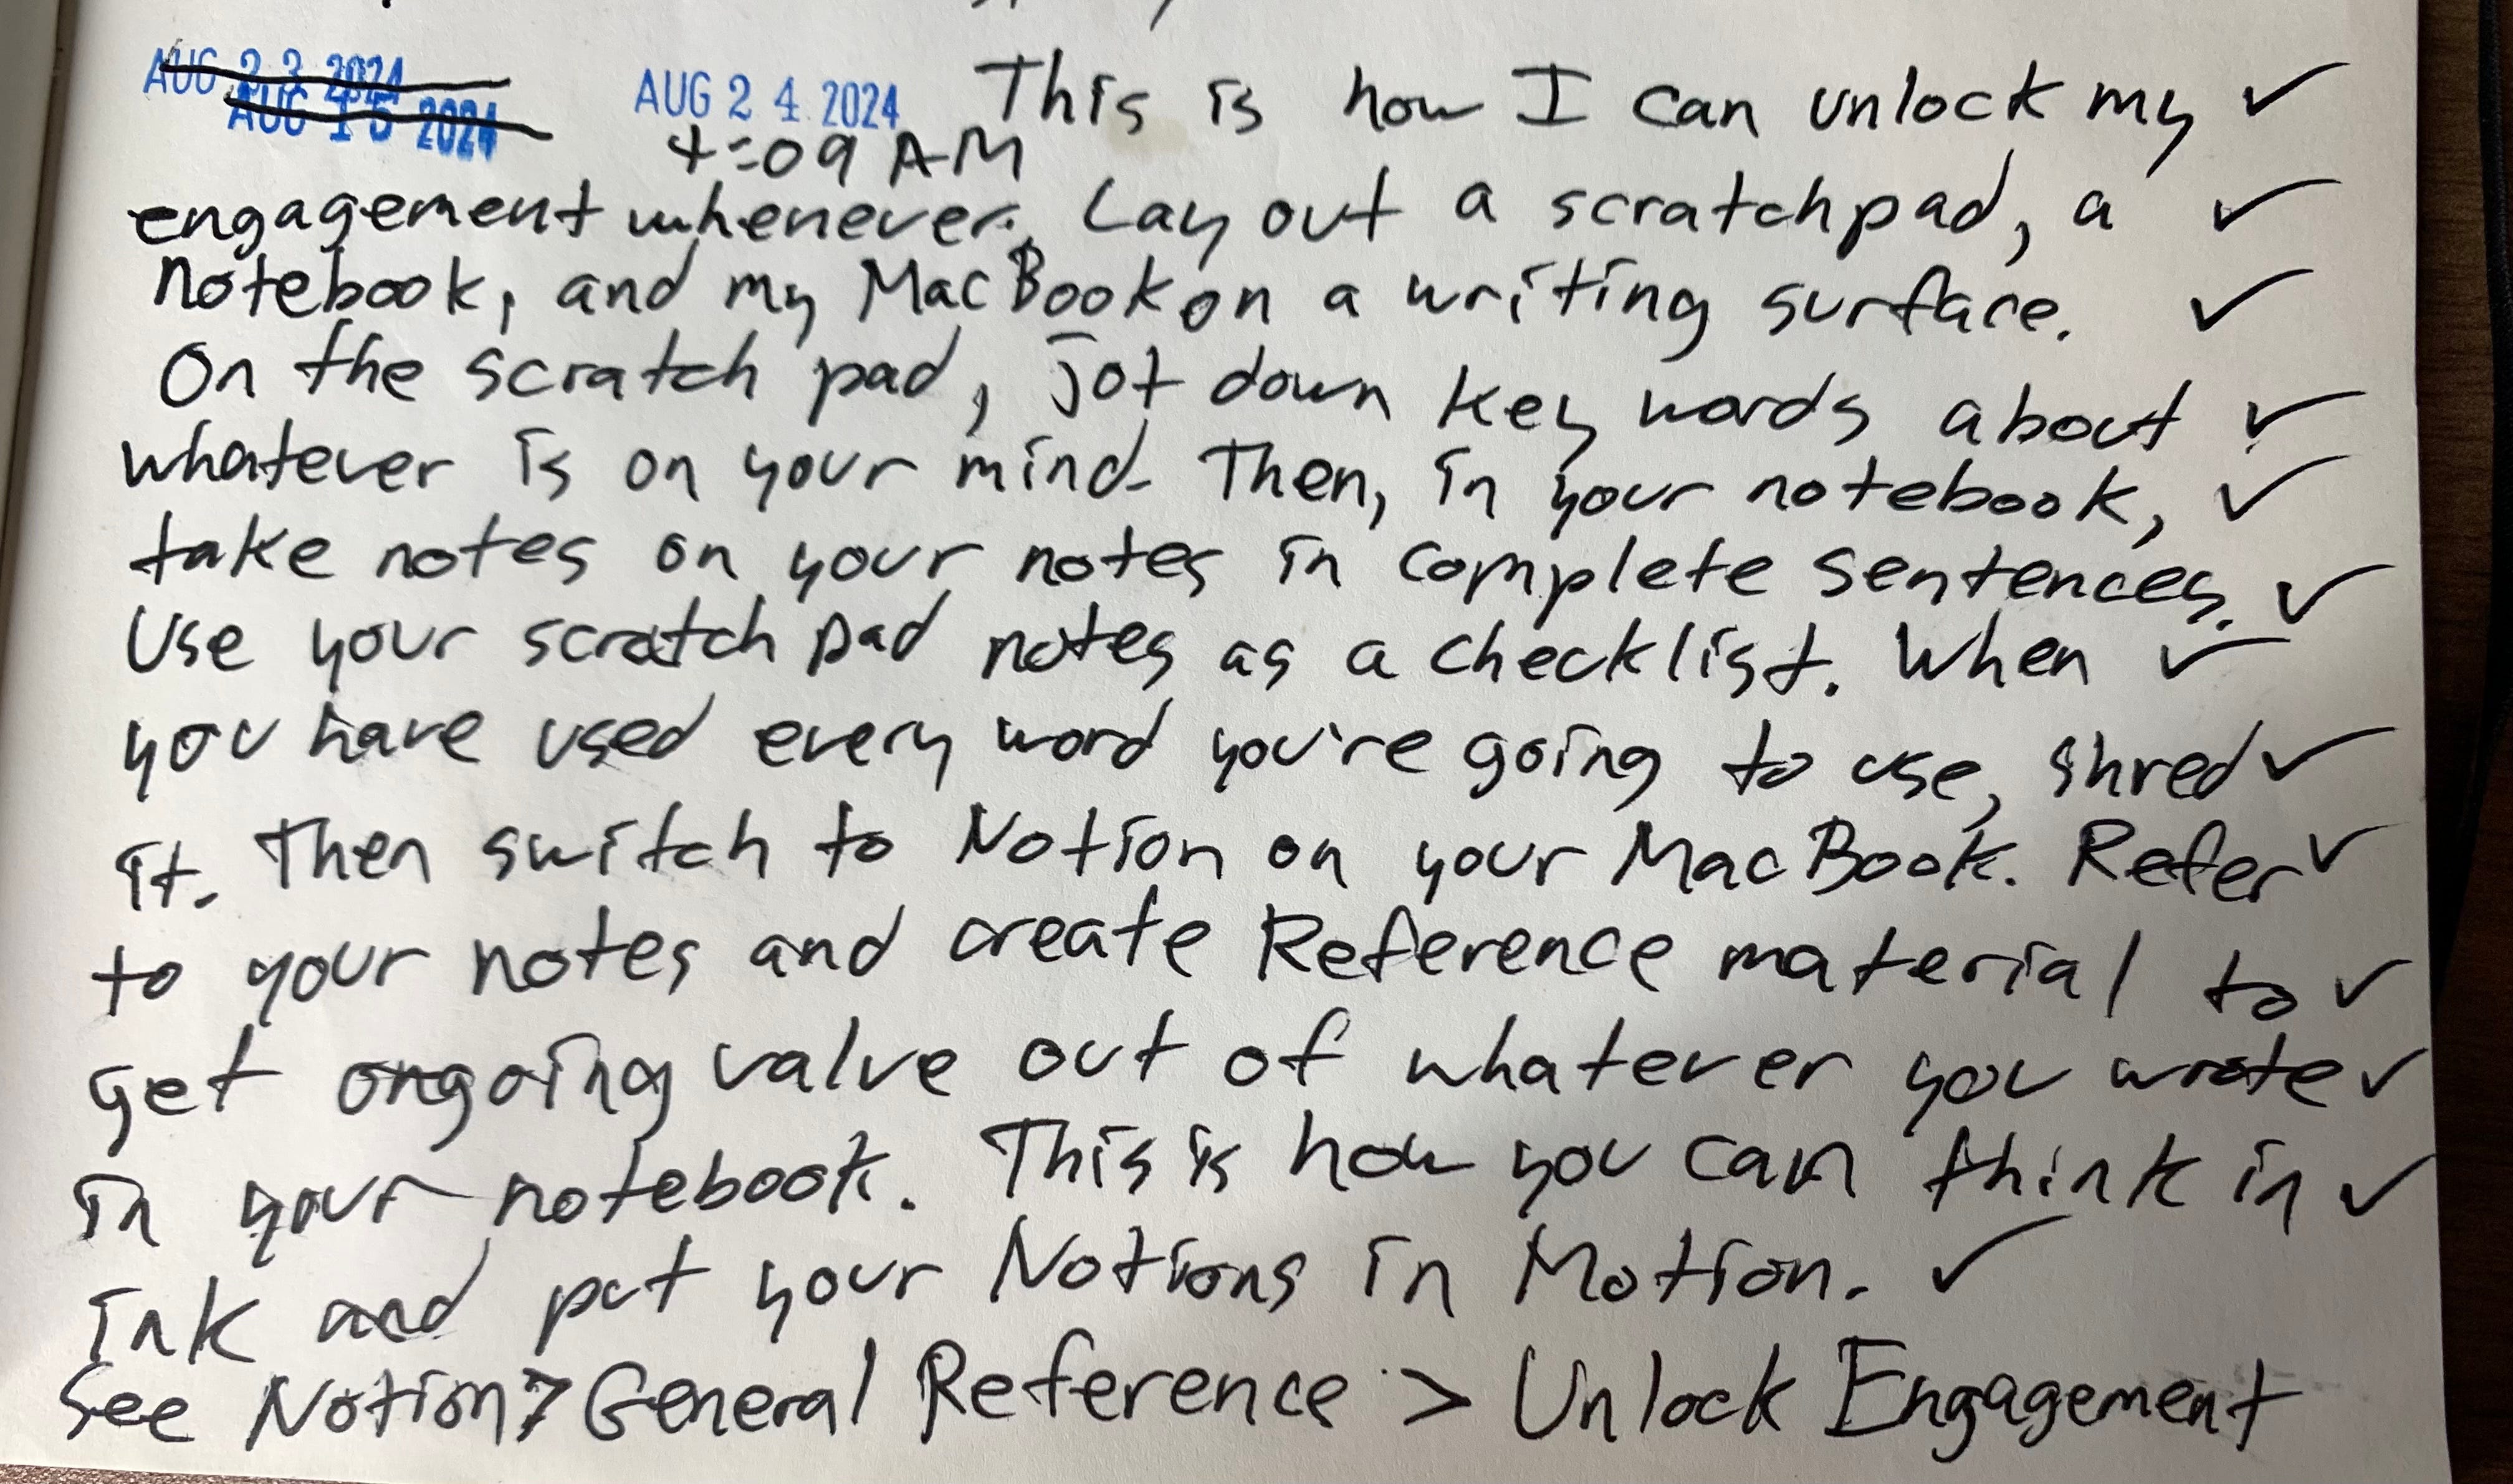 AUG 23 2024
AUG 15 2024
AUG 24 2024 This is how I can unlock my ✓
4:09 AM
engagement whenever. Lay out a scratchpad, a ✓
notebook, and my MacBook on a writing surface. ✓
On the scratch pad, jot down key words about ✓
whatever is on your mind. Then, in your notebook, ✓
take notes on your notes in complete sentences. ✓
Use your scratch pad notes as a checklist. When ✓
you have used every word you're going to use, shred ✓
it. Then switch to Notion on your MacBook. Refer ✓
to your notes and create Reference material to ✓
get ongoing value out of whatever you wrote ✓
in your notebook. This is how you can think in ✓
ink and put your Notions in Motion. ✓
See Notion > General Reference > Unlock Engagement